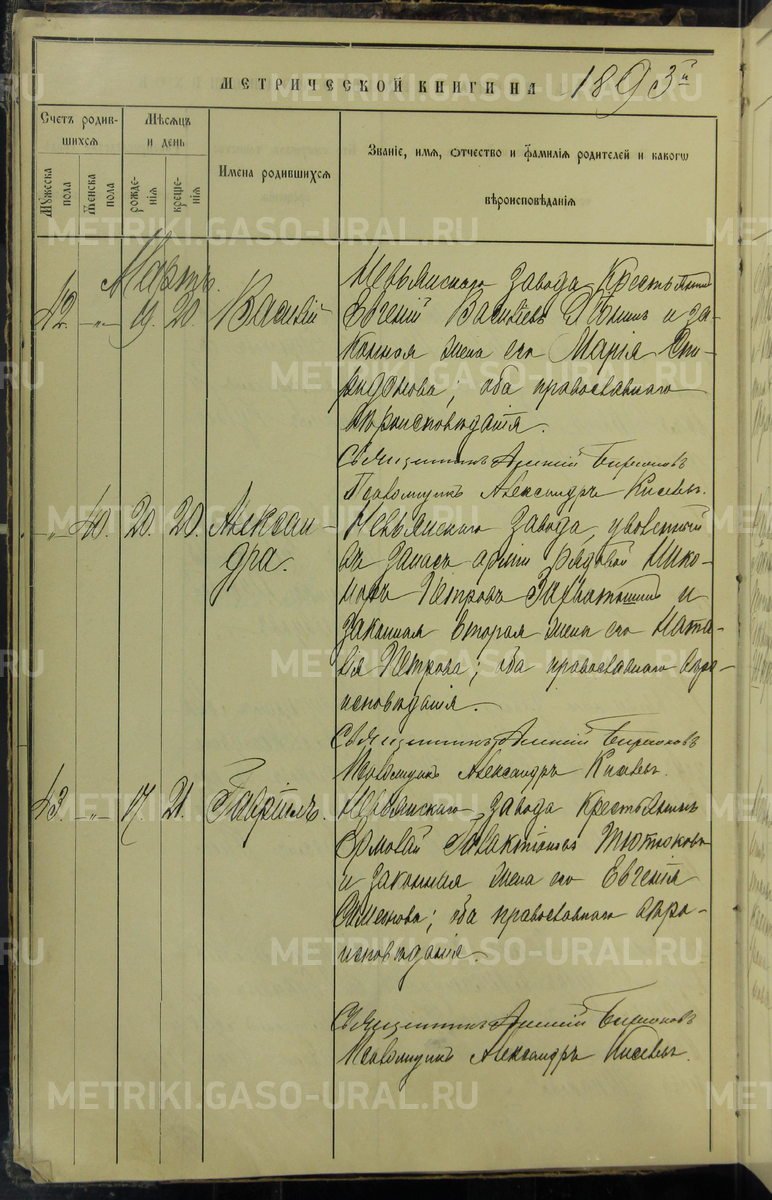 МЕТРИЧЕСКОЙ КНИГИ НА 1893й
Счетъ родив-
шихся
Мѣсяцъ
и день
Имена родившихся
Званіе, имя, отчество и фамилія родителей и какого
вѣроисповѣданія
Мужеска пола
Женска пола
рожде-
нія
креще-
нія
Мартъ.
42. „ 19. 20. Василій
Невьянскаго завода крестьянинъ
Евгеній Васильевъ и за-
конная жена его Марія Спи-
ридонова; оба православнаго
вѣроисповѣданія.
Священникъ Бирюковъ
Псаломщикъ Александръ Киселевъ.
„ 40. 20. 20. Алексан-
дра.
Невьянскаго завода, уволенный
въ запасъ арміи рядовой Нико-
лай Петровъ и
законная вторая жена его Ната-
лія Петрова; оба православнаго вѣро-
исповѣданія.
Священникъ Бирюковъ
Псаломщикъ Александръ Киселевъ.
43. „ 17. 21. Гавріилъ.
Невьянскаго завода крестьянинъ
Ермолай Тютюковъ
и законная жена его Евгенія
Семенова; оба православнаго вѣро-
исповѣданія.
Священникъ Бирюковъ
Псаломщикъ Александръ Киселевъ.
METRIKI.GASO-URAL.RU